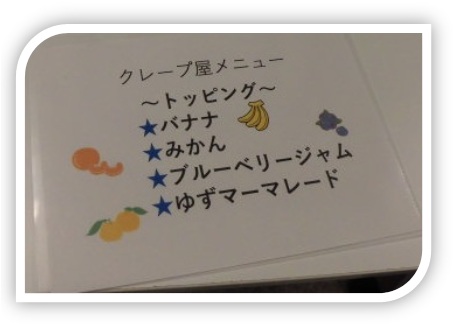 クレープ屋メニュー
～トッピング～
★バナナ
★みかん
★ブルーベリージャム
★ゆずマーマレード